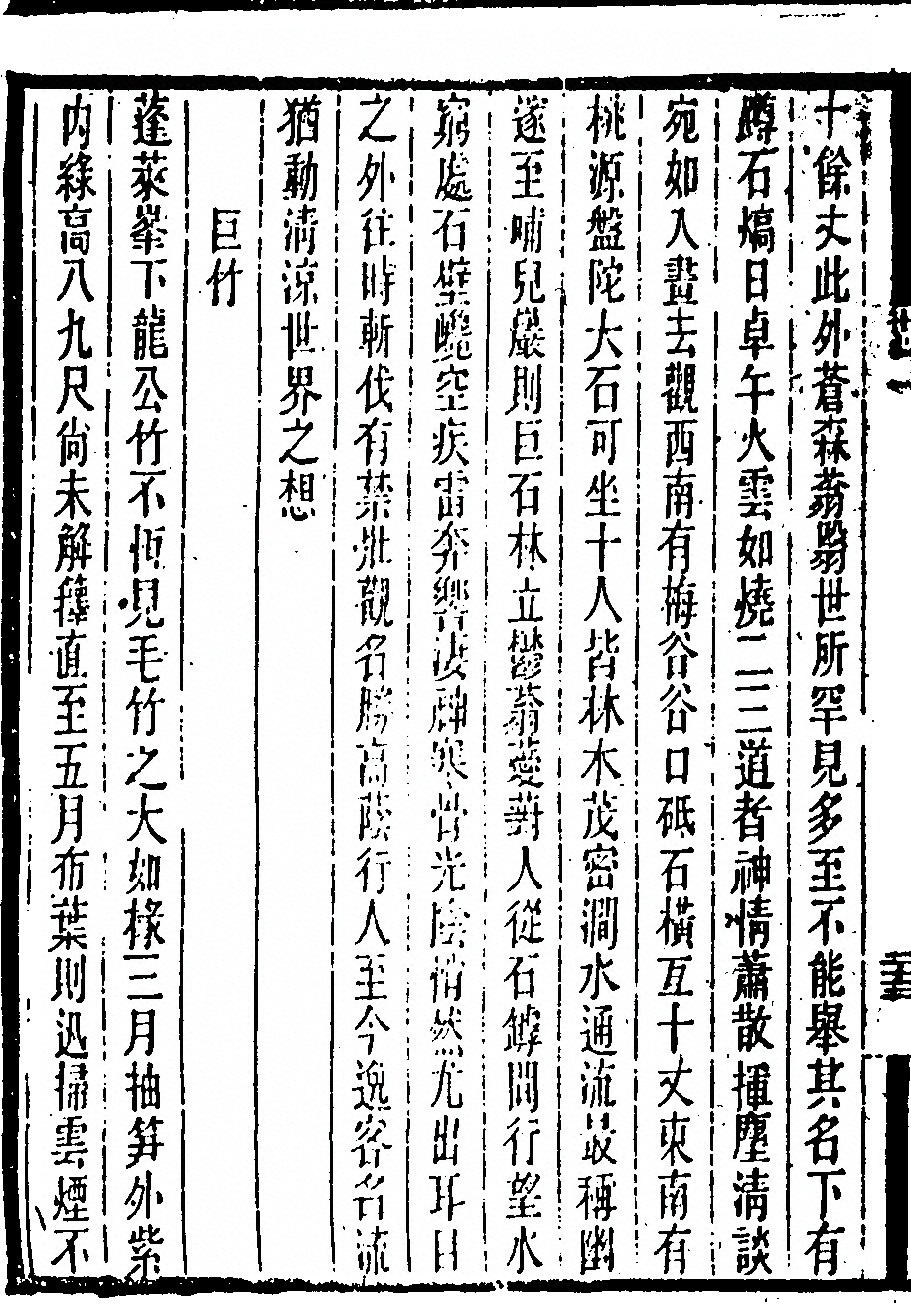 十餘丈此外蒼森蓊翳世所罕見多至不能舉其名下有
蹲石熇日卓午火雲如燒二三道者神情蕭散揮麈清談
宛如入畫去觀西南有梅谷谷口砥石橫亙十丈東南有
桃源盤陀大石可坐十人皆林木茂密澗水通流最稱幽
邃至晡兒巖則巨石林立鬱蓊蔓翳人從石罅間行望水
窮處石壁嶢空疾雷奔響凄神寒骨光陰悄然尤出耳目
之外往時斬伐有禁玭觀名勝高蔭行人至今逸客名流
猶動清涼世界之想
巨竹
蓬萊峯下龍公竹不恒見毛竹之大如椽三月抽笋外紫
内綠高八九尺尚未解籜直至五月布葉則迅掃雲煙不